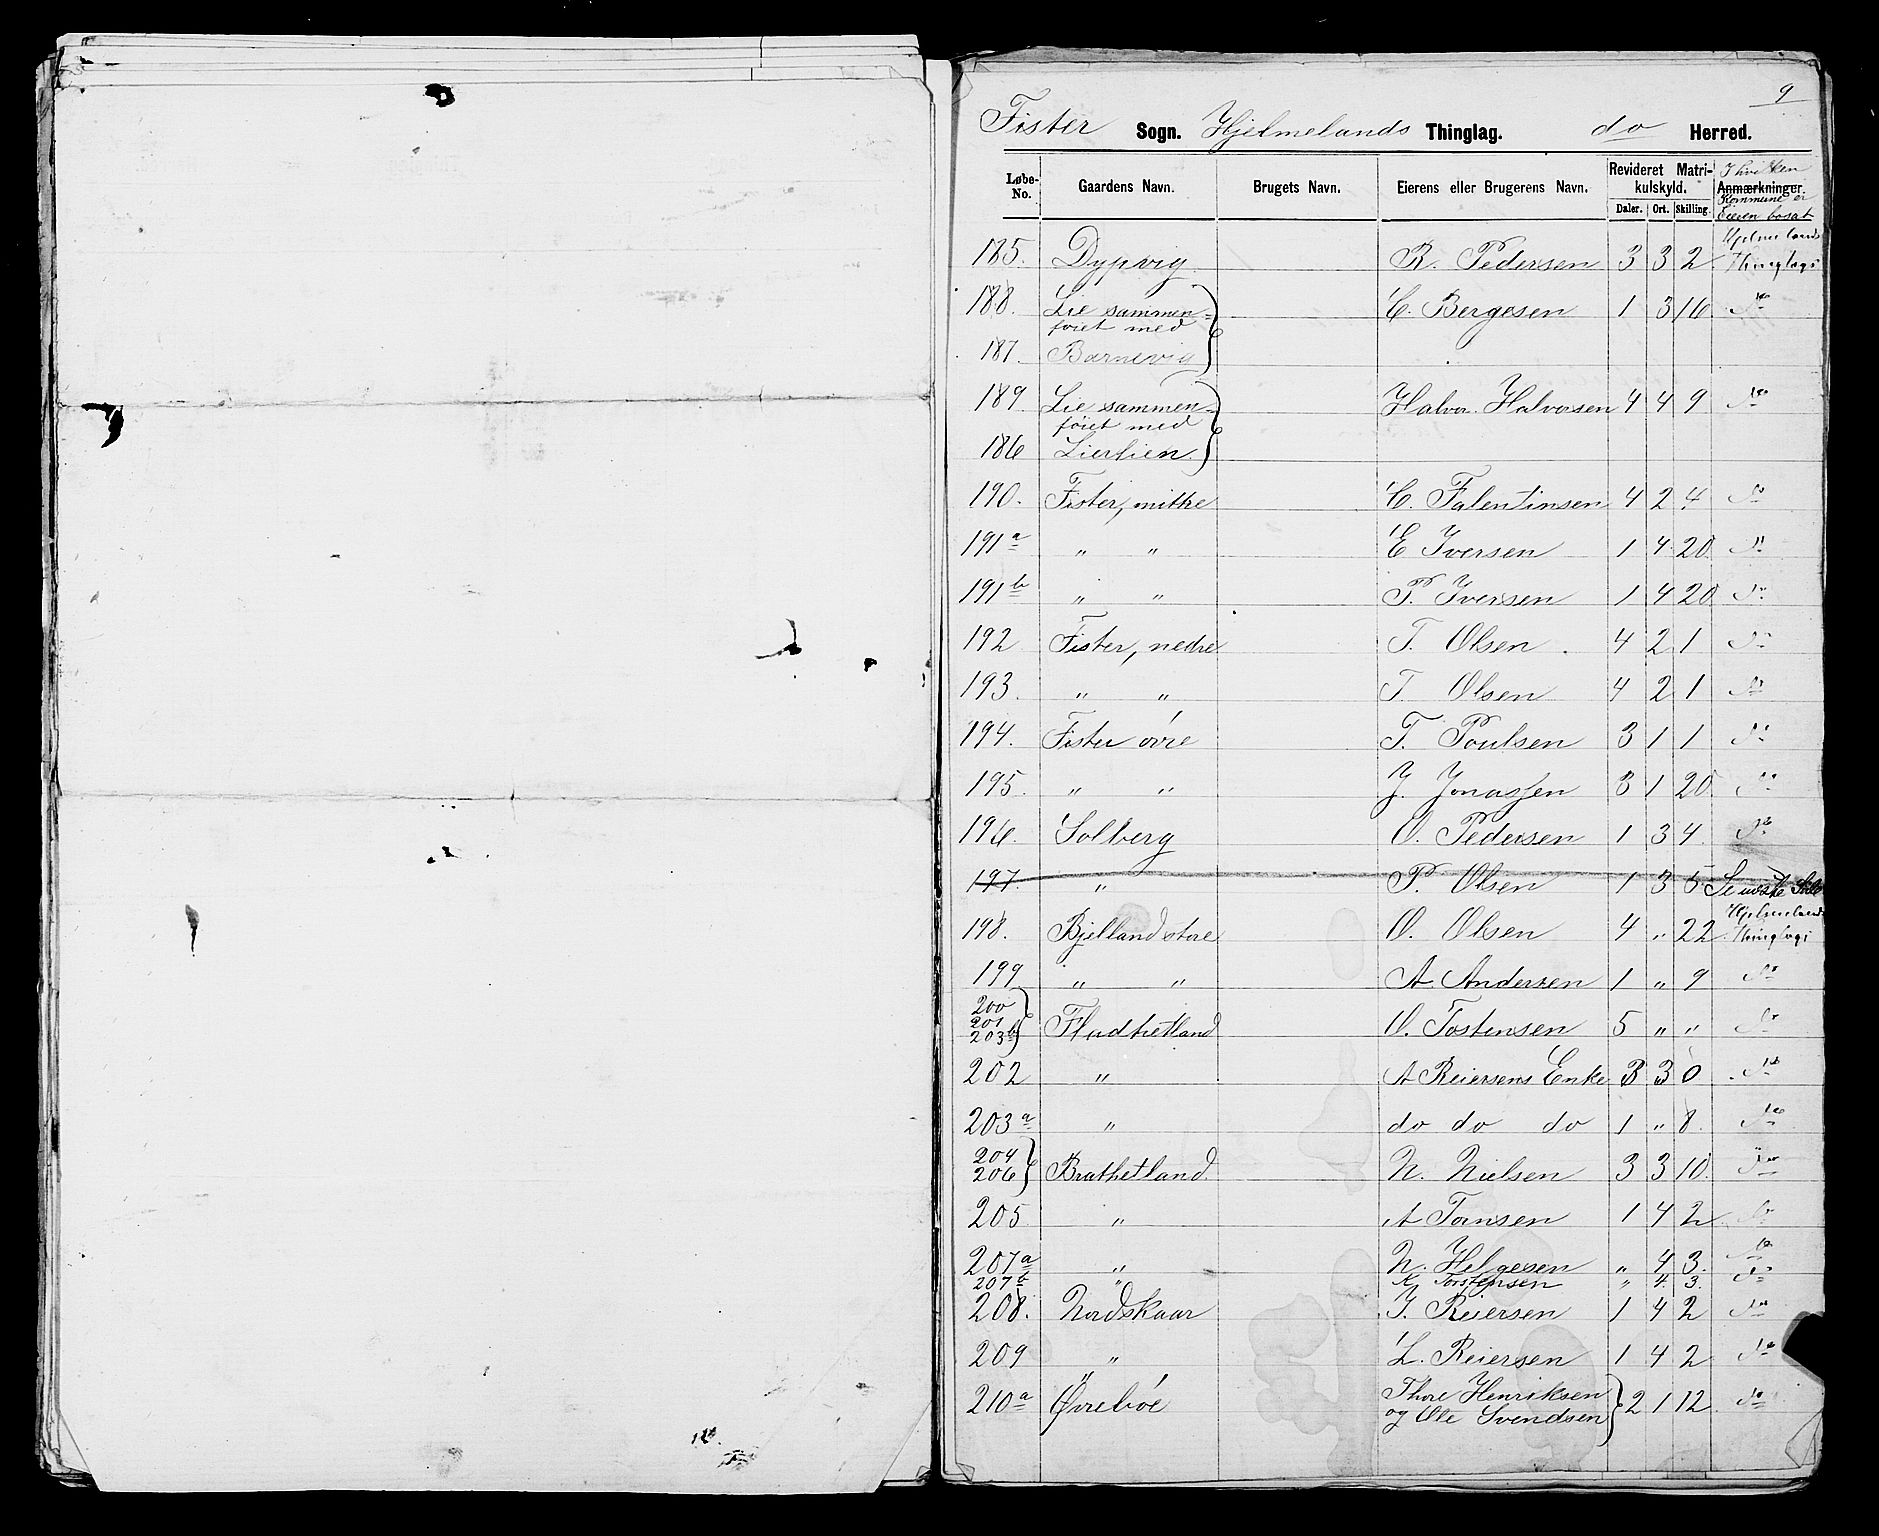 9
Fister Sogn. Hjelmelands Thinglag. do Herred.
Løbe-No. Gaardens Navn. Brugets Navn. Eierens eller Brugerens Navn. Revideret Matrikulskyld. Daler. Ort. Skilling. Anmærkninger. I hvilken Kommune er Eieren bosat
185. Dypvig. R. Pedersen 3 3 2 Hjelmelands Thinglag
188. Lie sammen- C. Bergesen 1 3 16 do
føiet med
187. Barnevig
189. Lie sammen- Halvor Halvorsen 4 4 9 do
føiet med
186 Lierlien.
190. Fister, mittre C. Falentinsen 4 2 4 do
191a " " E Iversen 1 4 20 do
191b " " P. Iversen 1 4 20 do
192 Fister, nedre T. Olsen 4 2 1 do
193. " " T Olsen 4 2 1 do
194. Fister øvre T. Poulsen 3 1 1 do
195. " " J. Jonassen 3 1 20 do
196. Solberg O. Pedersen 1 3 4 do
197. " P. Olsen 1 3 5 Se Side
198. Bjelland store O. Olsen 4 " 22 Hjelmelands Thinglag
199 " " A Andersen 1 " 9 do
200
201
203b Fladhetland O. Tostensen 5 " " do
202 " A Reiersens Enke 3 3 0 do
203a " do do do 1 " 8. do
204
206 Brathetland. N. Nielsen 3 3 10 do
205 " A Tornsen 1 4 2 do
207a " N. Helgesen " 4 3. do
207b " K Torstensen " 4. 3. do
208. Nordskaar J. Reiersen 1 4 2 do
209 " L. Reiersen 1 4 2 do
210a Øvrebøe Thore Henriksen 2 1 12 do
og Ole Svendsen